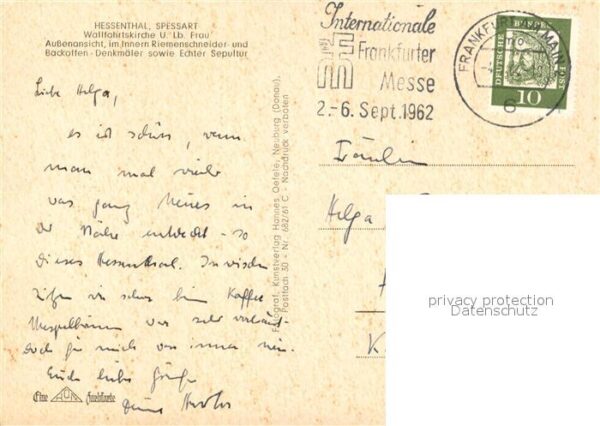 HESSENTHAL, SPESSART
Wallfahrtskirche U. Lb. Frau
Außenansicht, im Innern Riemenschneider- und
Backoffen-Denkmäler sowie Echter Sepultur
Liebe Helga,
es ist schön, wenn
man mal wieder
was ganz Neues in
der Nähe entdeckt - so
dieses Hessenthal. Inzwischen
sitzen wir schon beim Kaffee
Mespelbrunn war sehr
doch für mich was immer neu.
Euch liebe Grüße
Eine Funkkarte
Fotograf. Kunstverlag Hannes Oefele, Neuburg (Donau),
Postfach 50 - Nr. 682/61 C - Nachdruck verboten
Internationale
Frankfurter
Messe
2.-6. Sept. 1962
FRANKFURT MAIN
6
DEUTSCHE BUNDESPOST
10
Fräulein
Helga
privacy protection
Datenschutz